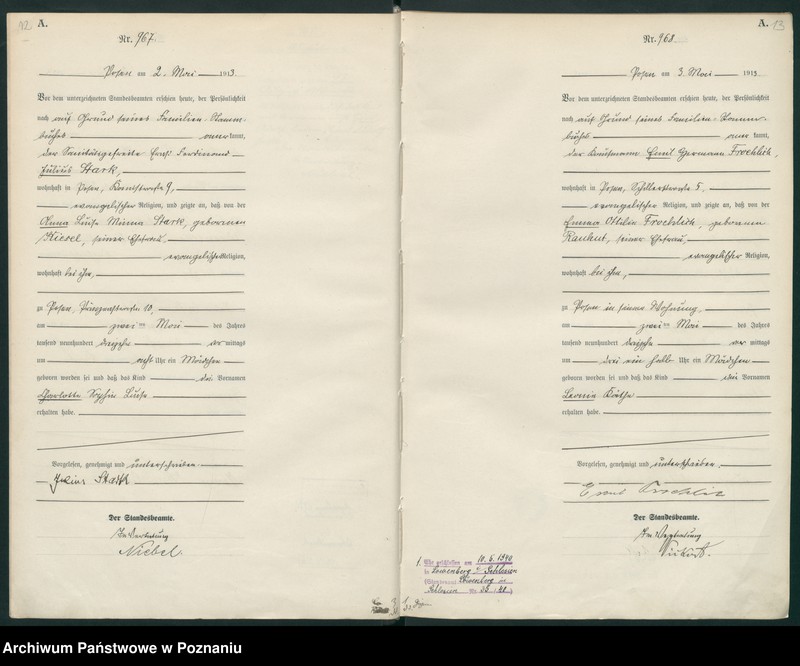 12 A.
Nr. 967.
Posen am 2. Mai 1913
Vor dem unterzeichneten Standesbeamten erschien heute, der Persönlichkeit
nach auf Grund seines Familien-Stamm-
buches anerkannt,
der Sanitätsgefreite Ernst Ferdinand
Julius Stark,
wohnhaft in Posen, 9,
evangelischer Religion, und zeigte an, daß von der
Anna Luise Minna Stark, geborenen
Kiesel, seiner Ehefrau,
evangelischer Religion,
wohnhaft bei ihm,
zu Posen, 10,
am zwei ten Mai des Jahres
tausend neunhundert dreizehn mittags
um acht Uhr ein Mädchen
geboren worden sei und daß das Kind die Vornamen
Charlotte Sophie Luise
erhalten habe.
Vorgelesen, genehmigt und unterschrieben.
Julius Stark
Der Standesbeamte.
In Vertretung
Niebel.
A. 13
Nr. 968.
Posen am 3. Mai 1913
Vor dem unterzeichneten Standesbeamten erschien heute, der Persönlichkeit
nach auf Grund seines Familien-Stamm-
buches anerkannt,
der Kaufmann Emil Hermann Froehlich,
wohnhaft in Posen, Schillerstrasse 5,
evangelischer Religion, und zeigte an, daß von der
Emma Ottilie Froehlich, geborenen
Rauhut, seiner Ehefrau,
evangelischer Religion,
wohnhaft bei ihm,
zu Posen in seiner Wohnung,
am zwei ten Mai des Jahres
tausend neunhundert dreizehn mittags
um drei ein halb Uhr ein Mädchen
geboren worden sei und daß das Kind die Vornamen
Leonie Käthe
erhalten habe.
Vorgelesen, genehmigt und unterschrieben.
Emil Froehlich
Der Standesbeamte.
In Vertretung
1. Ehe geschlossen am 10.5.1940
in Löwenberg i. Schlesien
(Standesamt Löwenberg in
Schlesien Nr. /40)
Archiwum Państwowe w Poznaniu